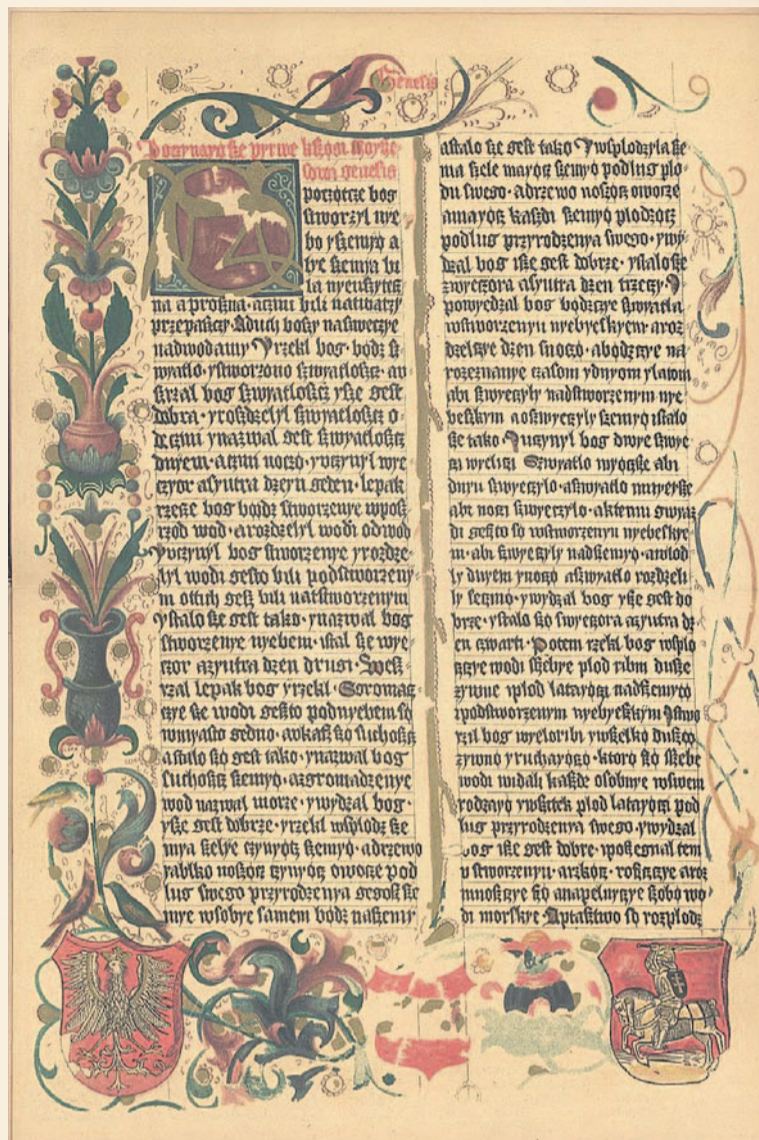 Genesis
Poczynayø sze pyrwe kszøgi moysze
szowi genesis
poczøtcze bog
stworzyl nye
bo y szemyø a
lye szemya bi
la nyeuszytcz
na a prozna· a czmi bili na twarzy
przepasczy· A duch boszy na swecye
nad wodamy Y rzekl bog· bødz sz
wyatlo· y stworzono szwyatloscz· a v
szrzal bog szwyatloscz ysze gest
dobra· y rosdzelyl szwyatloscz o
de czmi y nazwal gest szwyatloscz
dnyem· a czmi noczø· y vczynyl wye
czyor a s yutra dzen geden· lepak
rzecze bog bødz stworzenye w pos
rzod wod· a rozdzelyl wodi od wod
Y vczynyl bog stworzenye y rozdze
lyl wodi gesto bili pod stworzeny
m ottich gesz bili nad stworzenym
Y stalo sze gest tako· y nazwal bog
stworzenye nyebem· i stal sze wye
czor a z yutra dzen drugi· Wesz
rzal lepak bog y rzekl· Sgromacz
cye sze wodi gesto pod nyebem sø
w myasto gedno· a vkasz szø suchoscz
a stalo szø gest tako· y nazwal bog
suchoscz szemyø· a zgromadzenye
wod nazwal morze· y wydzal bog·
ysze gest dobrze· y rzekl wsplodz sze
mya szelye czynyøcz szemyø· a drzewo
yablko noszøcz czynyøcz owocze pod
lug swego przyrodzenya gegosz sze
mye w sobye samem bødz na szemy
a stalo sze gest tako Y wsplodzyla sze
mya szele mayøcz szemyø podlug plo
du swego· a drzewo noszøcz owocze
a mayøcz kaszdi szemyø plodzøcz
podlug przyrodzenya swego· y wy
dzal bog isze gest dobrze· y stalo sze
z wyeczora a s yutra dzen trzeczy· Y
powyedzal bog bødzcye szwyatla
w stworzenyu nyebyeskyem a roz
dzelcye dzen s noczø· a bødzcye na
rozeznanye czasom y dnyom y latom
abi szwyeczyly nad stworzenym nye
beszkym a oszwyeczyly szemyø i stalo
sze tako Y uczynyl bog dwye szwye
czi wyelicy Szwyatlo wyøcsze abi
dnyu szwyeczylo· a szwyatlo mnyeysze
abi noci szwyeczylo· a k temu gwyaz
di gesto so w stworzenyu nyebeskye
m· abi szwyeczyly nad szemyø· a wlod
ly dnyem y noczø a szwyatlo rozdzeli
ly se czmø· y wydzal bog ysze gest do
brze· y stalo szø s wyeczora a z yutra dz
en czwarti· Potem rzekl bog wsplo
czcye wodi szebye plod ribni dusze
zywne y plod latayøczi nad szemyø
pod stworzenym nyebyeskym Y stwo
rzil bog wyeloribi y wszelkø duszø
zywnø y ruchayøczø· ktorø szø szebe
wodi widali kaszde osobnye w swem
rodzayø y wszitek plod latayøczi pod
lug przyrodzenya swego· y wydzal
bog isze gest dobre· y poszegnal tem
v stworzenyu· a rzkøcz· roszczcye a roz
mnoszcye szø a napelnycye szobø wo
di morskye· A ptastwo sø rozplodz